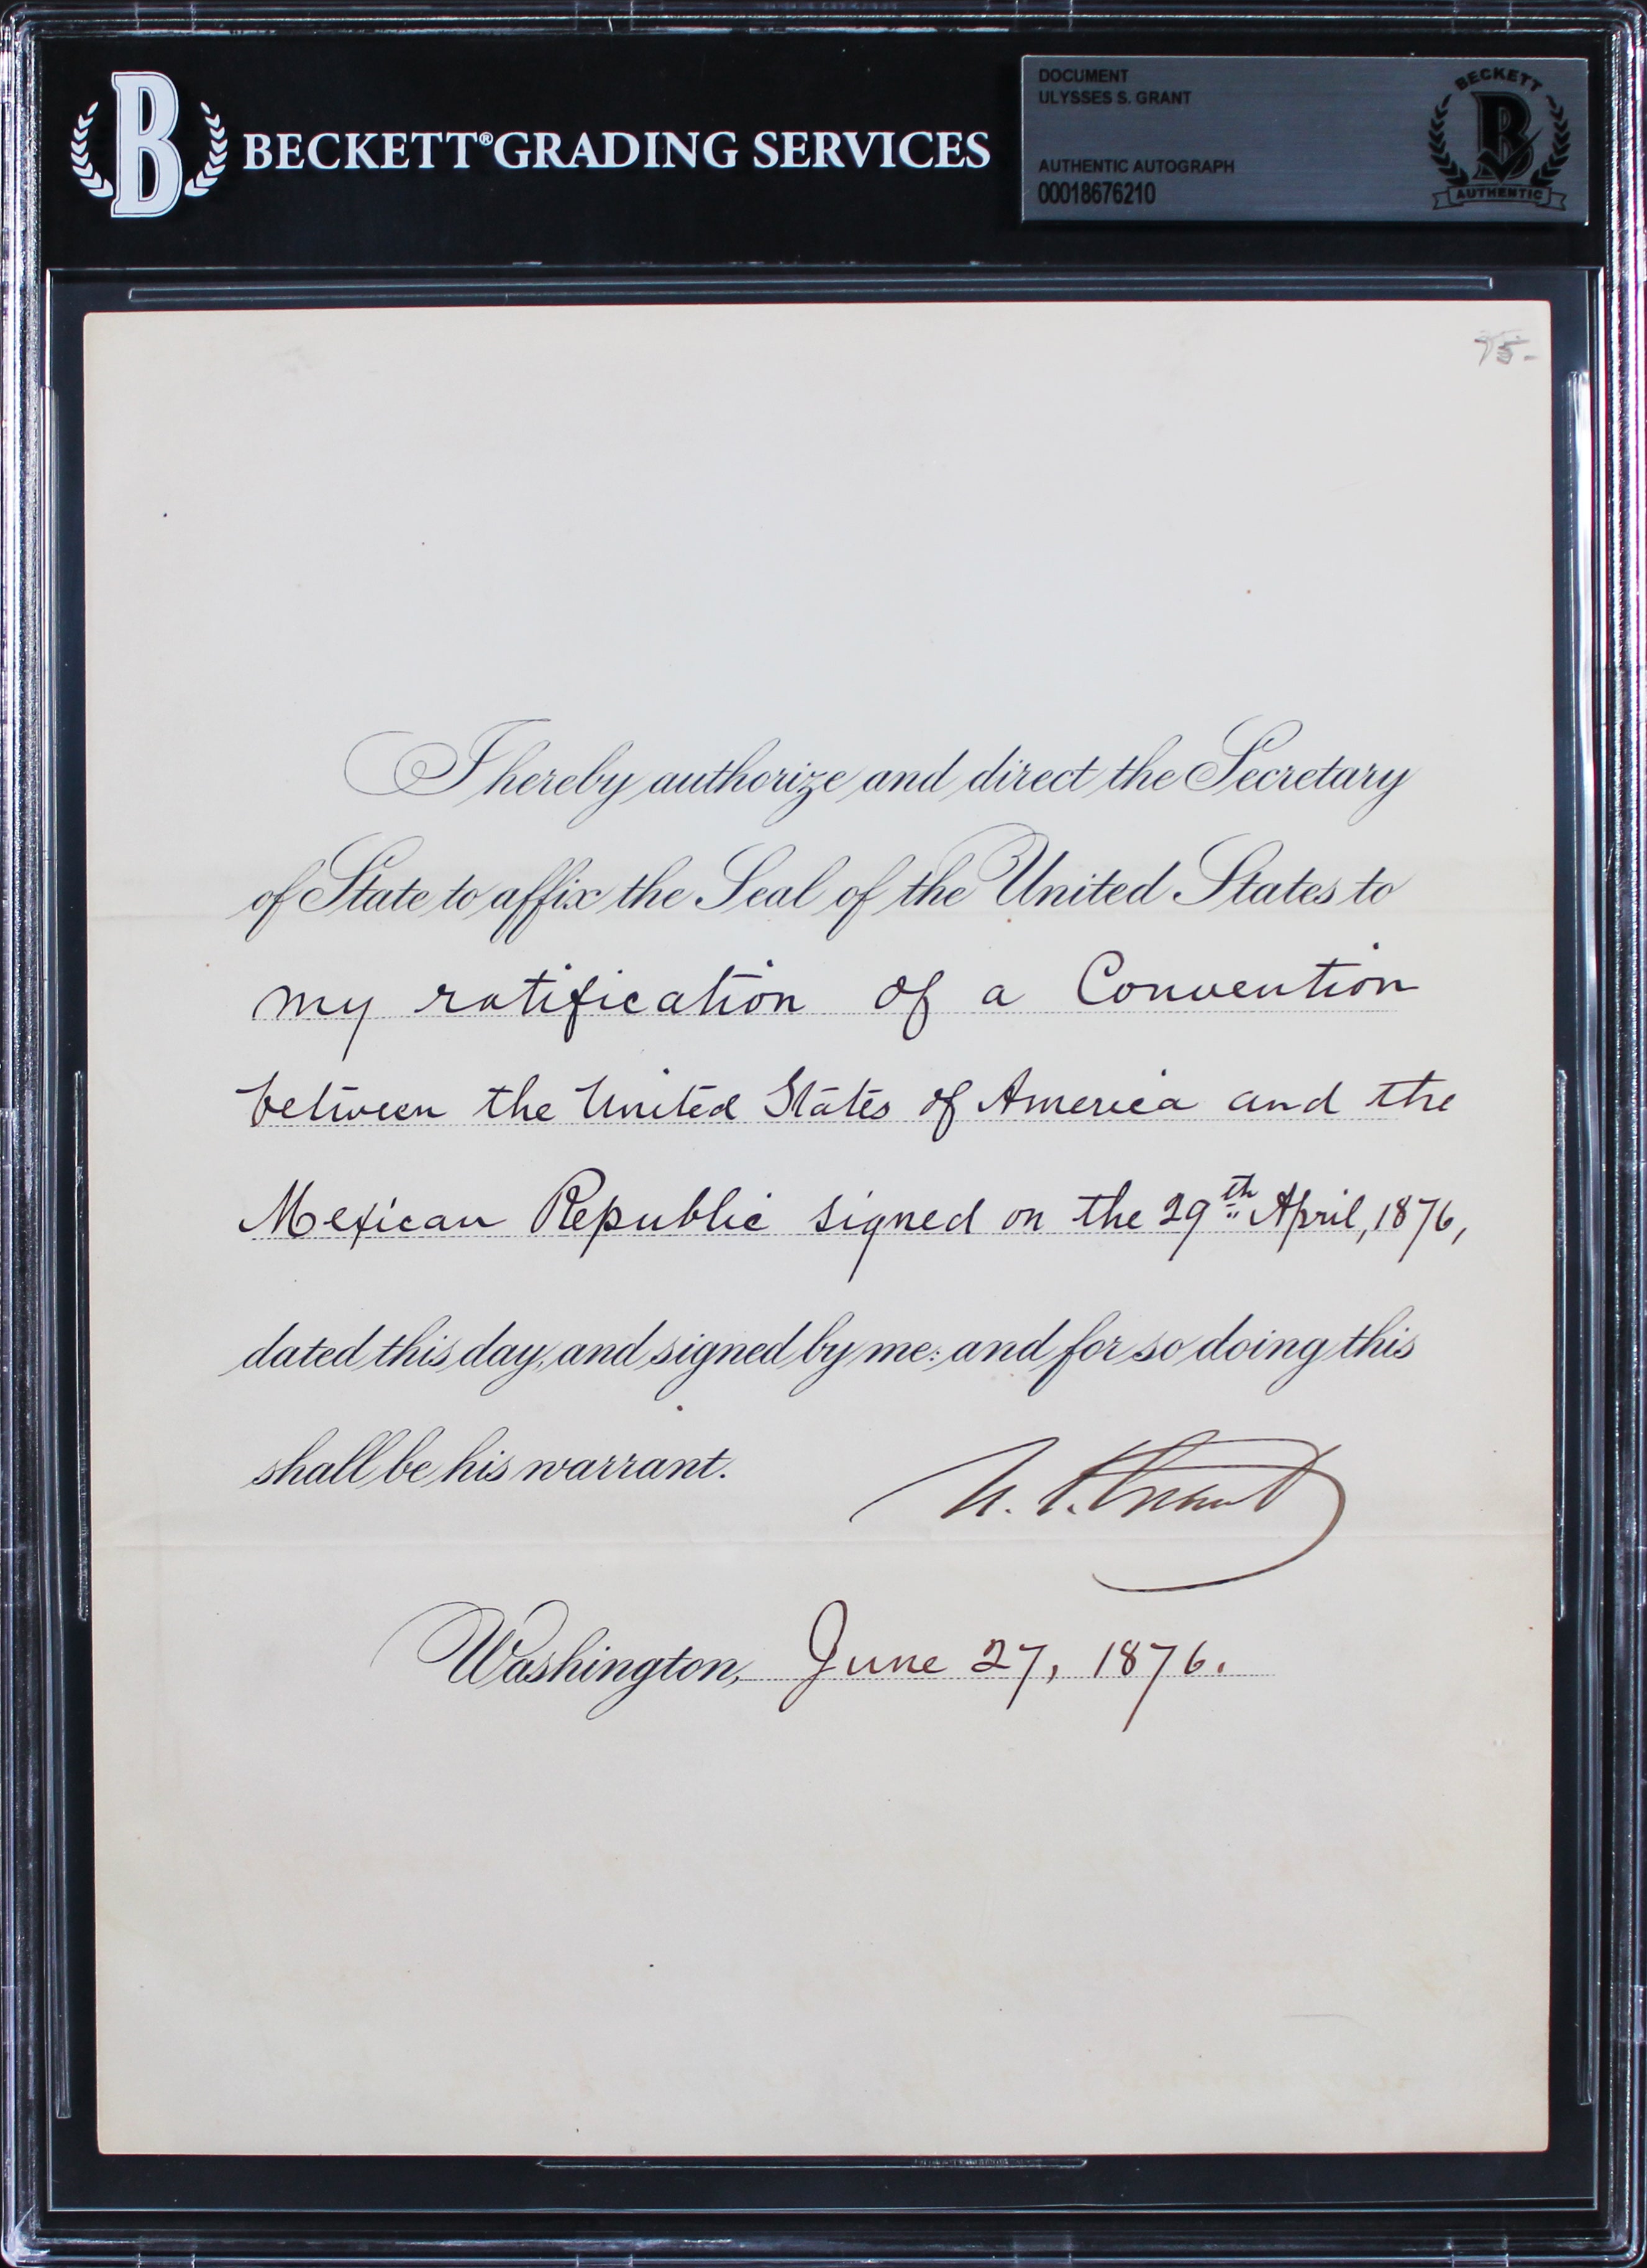 B
BECKETT®GRADING SERVICES
DOCUMENT
ULYSSES S. GRANT
AUTHENTIC AUTOGRAPH
00018676210
BECKETT
B
AUTHENTIC
I hereby authorize and direct the Secretary
of State to affix the Seal of the United States to
my ratification of a Convention
between the United States of America and the
Mexican Republic signed on the 29th April, 1876,
dated this day, and signed by me: and for so doing this
shall be his warrant.
U. S. Grant
Washington, June 27, 1876.